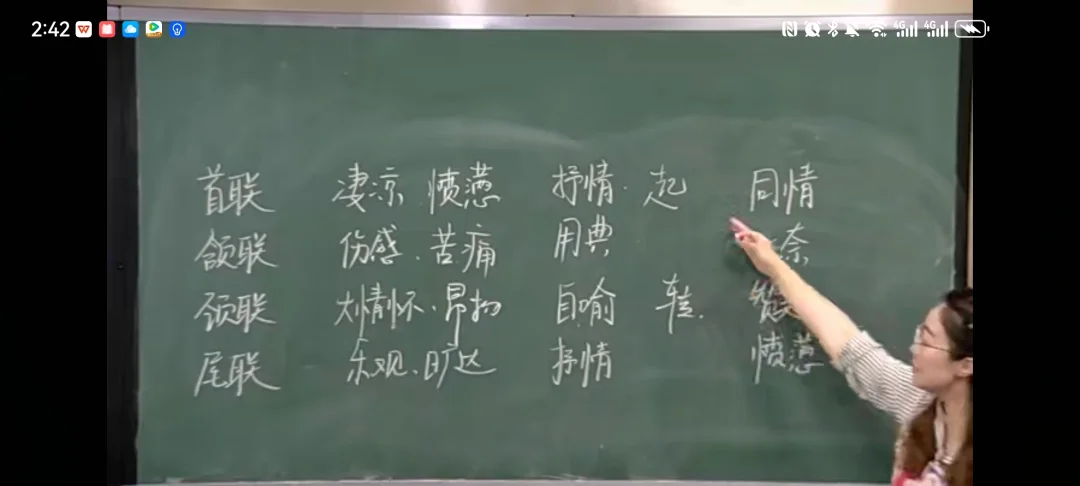 2:42
4G 4G
首联 凄凉、愤懑 抒情· 起 同情
颔联 伤感、苦痛 用典 奈
颈联 大情怀、昂扬 自喻 转
尾联 乐观、旷达 抒情 愤懑